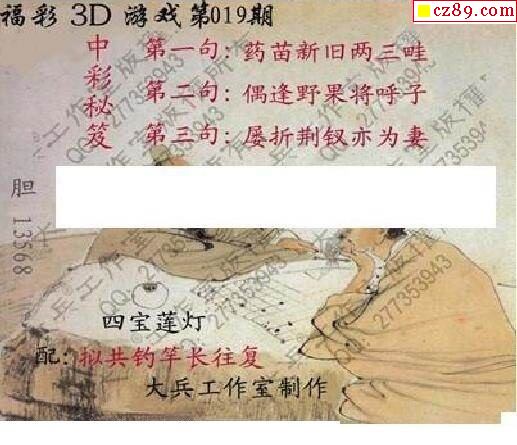 cz89.com
福彩 3D 游戏第019期
中彩秘笈
第一句：药苗新旧两三畦
第二句：偶逢野果将呼子
第三句：屡折荆钗亦为妻
胆 13568
四宝莲灯
配：拟共钓竿长往复
大兵工作室制作
大兵工作室版权所有
QQ:277353943